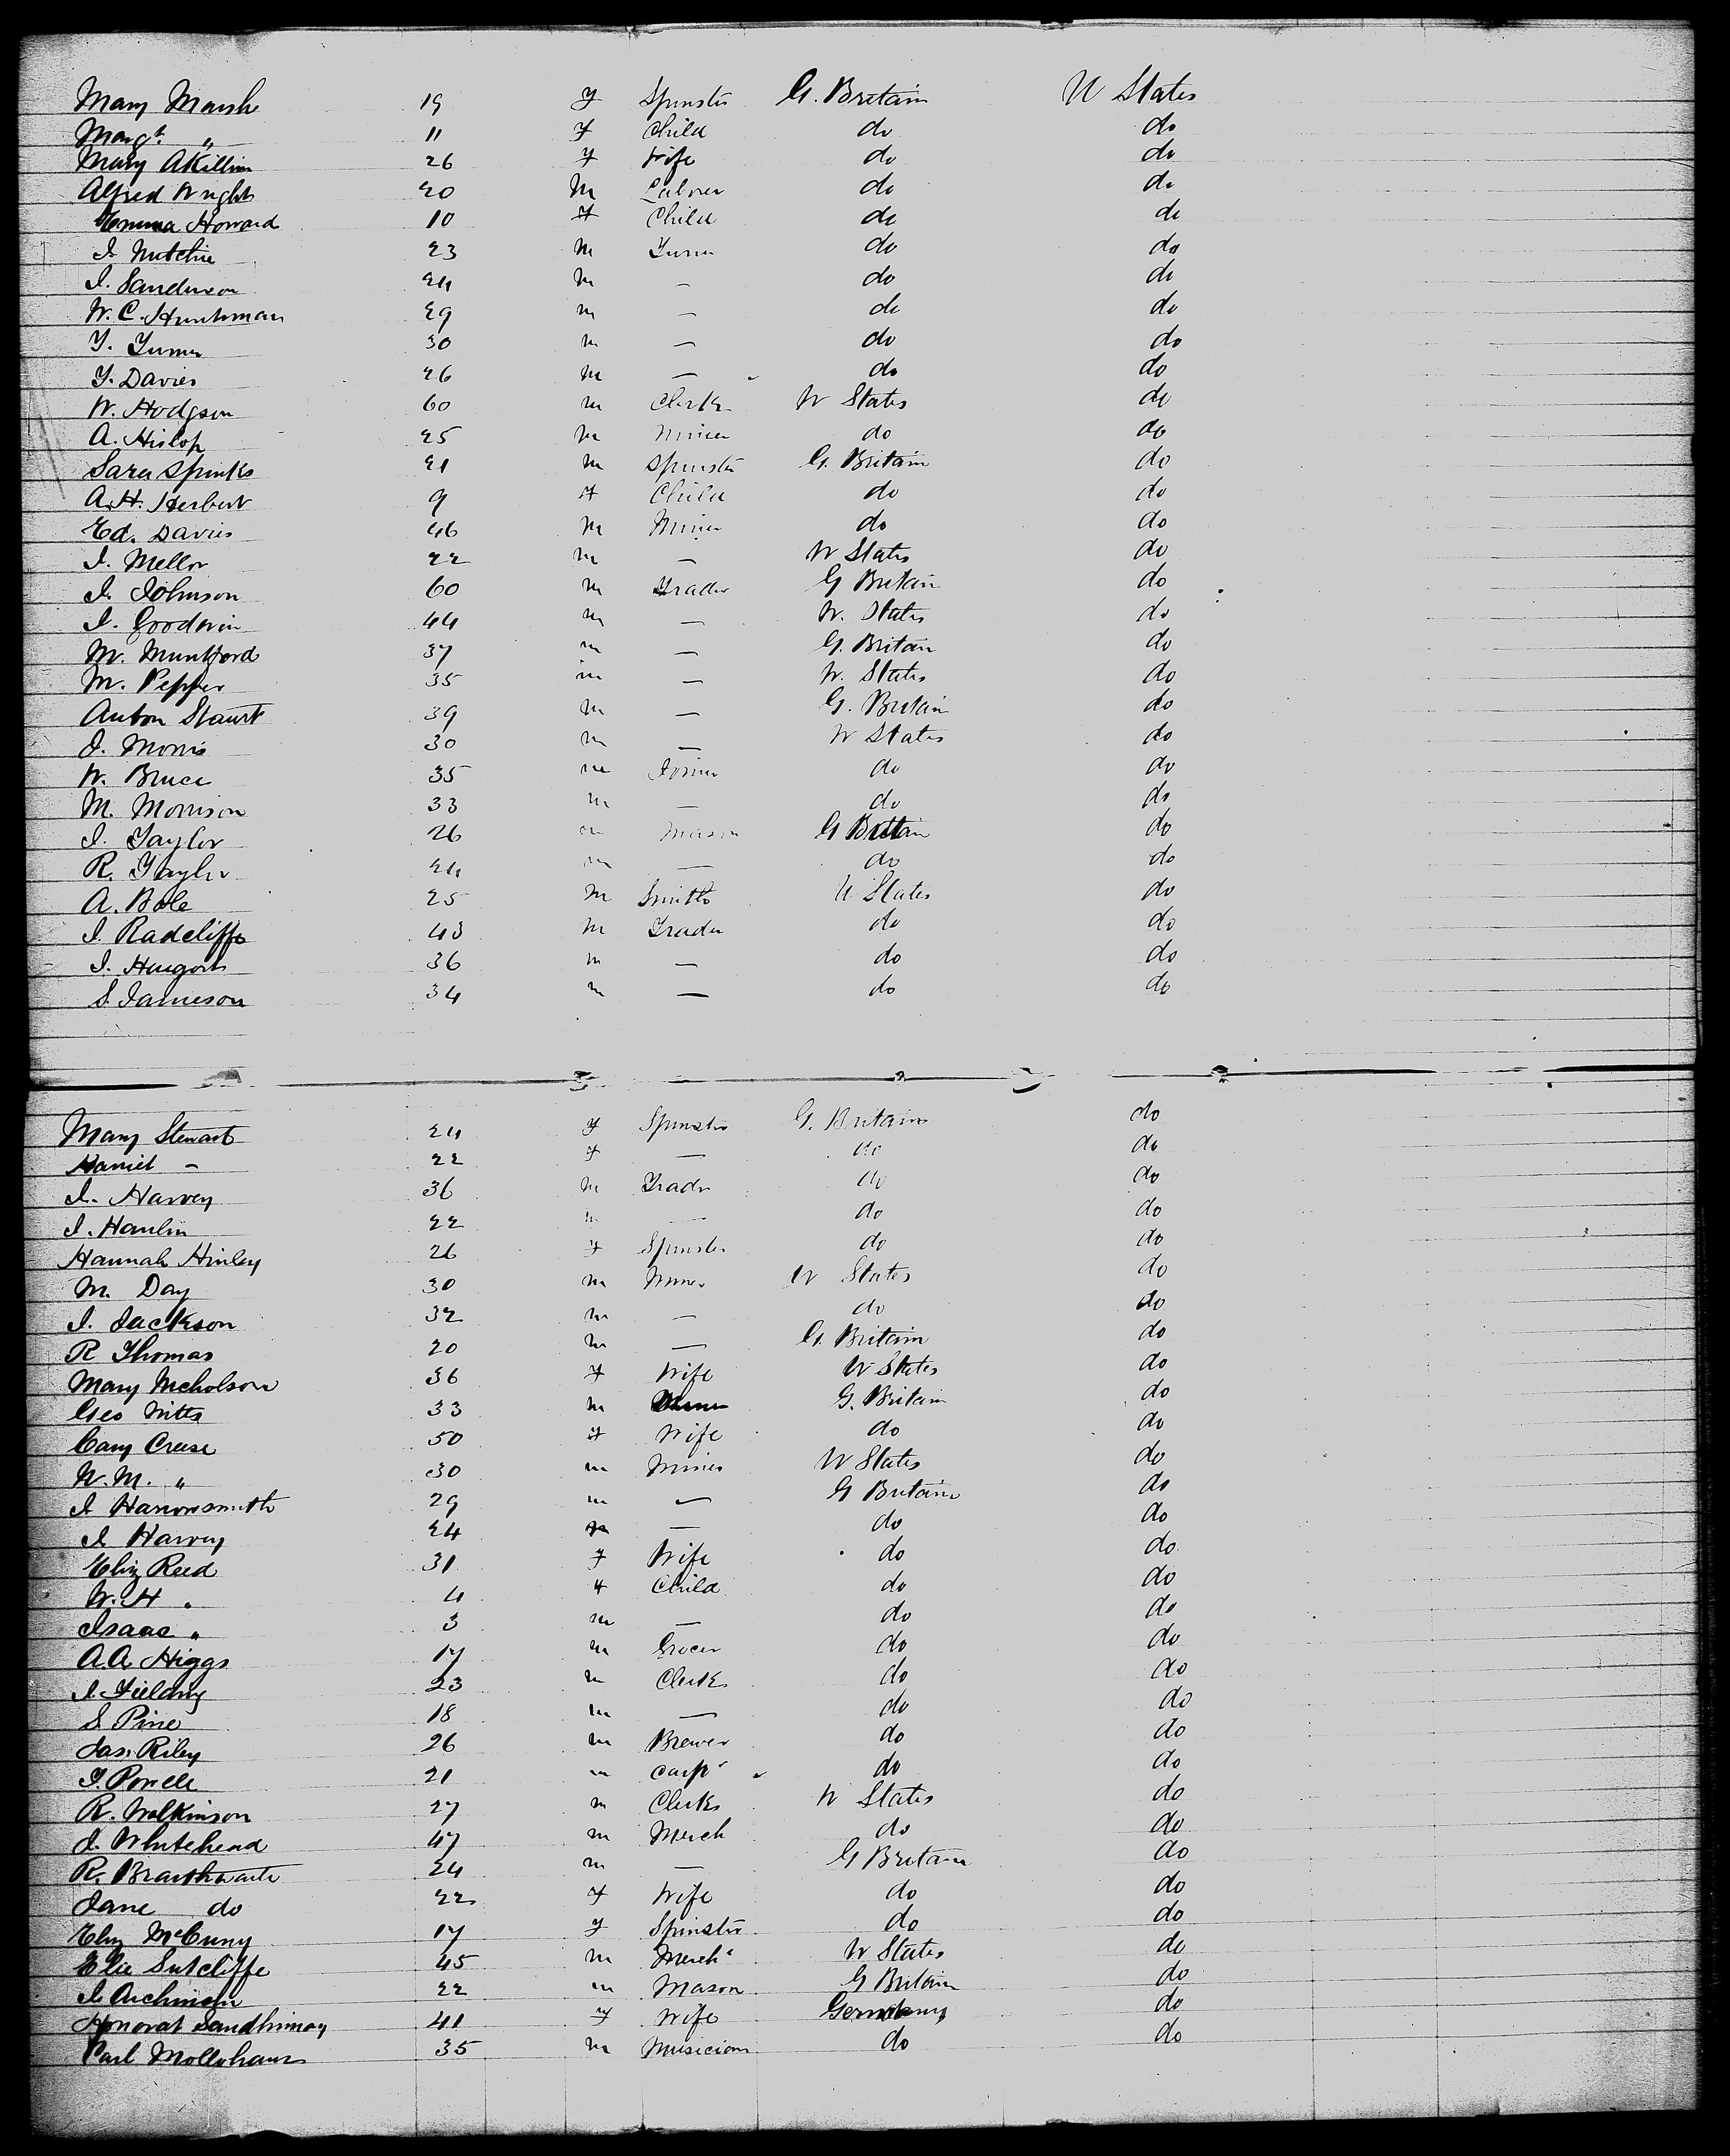 Mary Marsh 19 F Spinster G. Britain U States
Margt. " 11 F Child do do
Mary A Killim 26 F Wife do do
Alfred Wright 20 M Laborer do do
Emma Howard 10 F Child do do
J. 23 M Turner do do
J. Sanderson 24 M — do do
W. C. Hunhman 29 M — do do
T. Turner 30 M — do do
T. Davies 26 M — do do
W. Hodgson 60 M Clerk U States do
A. Hislop 25 M Miner do do
Sara Spinks 21 M Spinster G. Britain do
A. H. Herbert 9 F Child do do
Ed. Davies 46 M Miner do do
J. Mellor 22 M — U States do
J. Johnson 60 M Trader G Britain do
J. Goodwin 44 M — U. States do
W. Muntford 37 M — G. Britain do
M. Pepper 35 M — U. States do
Anton Staurt 39 M — G. Britain do
J. Morris 30 M — U States do
W. Bruce 35 M Joiner do do
M. Morrison 33 M — do do
J. Taylor 26 M Mason G Britain do
R. Taylor 24 M — do do
A. Bole 25 M Smith U States do
J. Radcliffe 43 M Trader do do
J. 36 M — do do
S. Jameson 34 M — do do
Mary Stewart 24 F Spinster G. Britain do
Harriet — 22 F — do do
J. Harvey 36 M Trader do do
J. Hanlin 22 M — do do
Hannah Hinley 26 F Spinster do do
M. Day 30 M Miner U States do
J. Jackson 32 M — do do
R Thomas 20 M — G. Britain do
Mary Nicholson 36 F Wife U States do
Geo 33 M G. Britain do
Cary Crease 50 F Wife do do
W. M. " 30 M Miner U States do
J Harronsmith 29 M — G Britain do
J Harvey 24 M — do do
Eliz Reed 31 F Wife do do
W. H " 4 F Child do do
Isaac " 3 M — do do
A. A. Higgs 17 M Grocer do do
J. Fielding 23 M Clerk do do
S. Pine 18 M — do do
Jas. Riley 26 M Brewer do do
T. Powell 21 M Carpr do do
R. Wilkinson 27 M Clerk U States do
J. Whitehead 47 M Merch do do
R. Braithwaite 24 M — G Britain do
Jane do 22 F Wife do do
Eliz McCuny 17 F Spinster do do
Elie Sutcliffe 45 M Mercht U States do
J. 22 M Mason G Britain do
Honorat 41 F Wife Germany do
Carl Mollohaus 35 M Musician do do